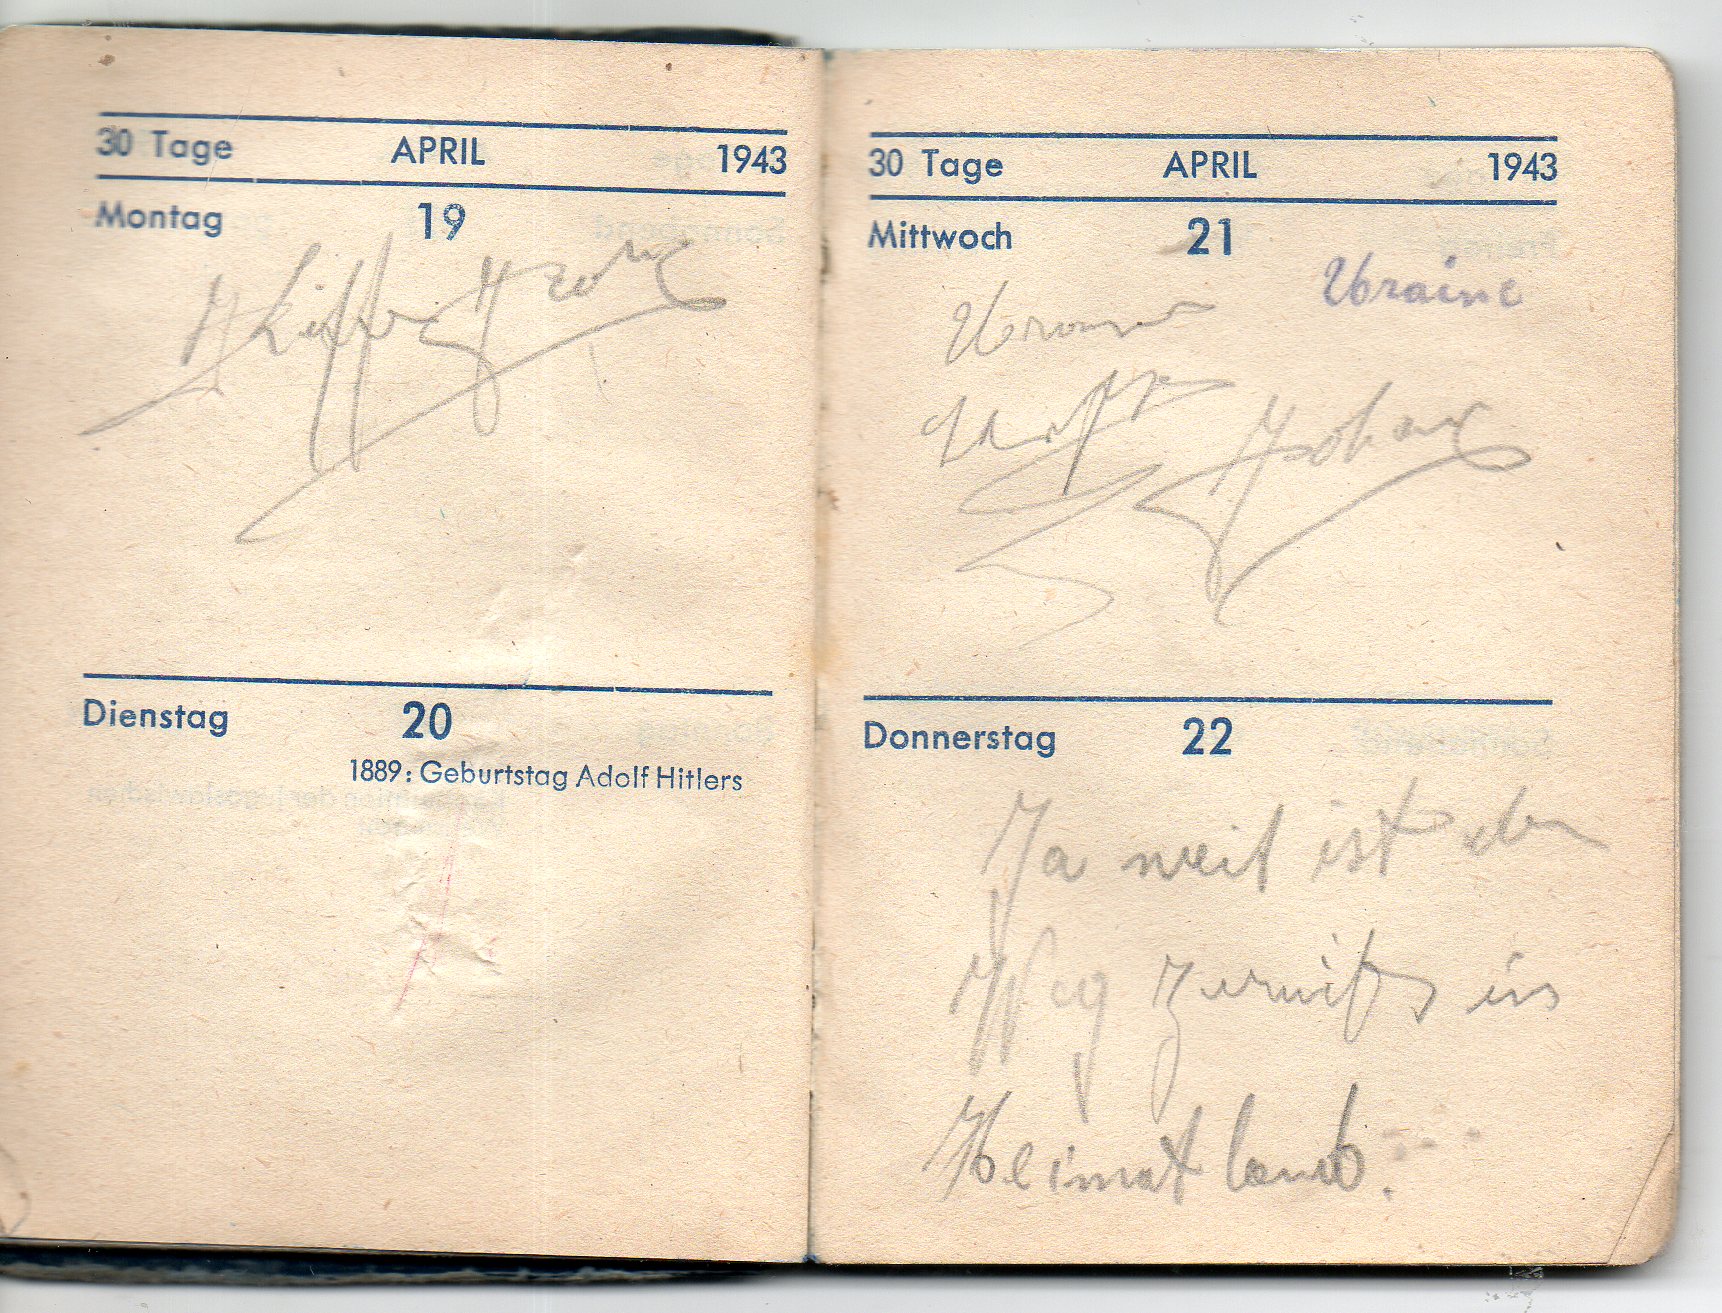 30 Tage APRIL 1943
Montag 19
Dienstag 20
1889: Geburtstag Adolf Hitlers
30 Tage APRIL 1943
Mittwoch 21
Ukraine
Donnerstag 22
Ja weit ist der
Weg zurück ins
Heimatland.